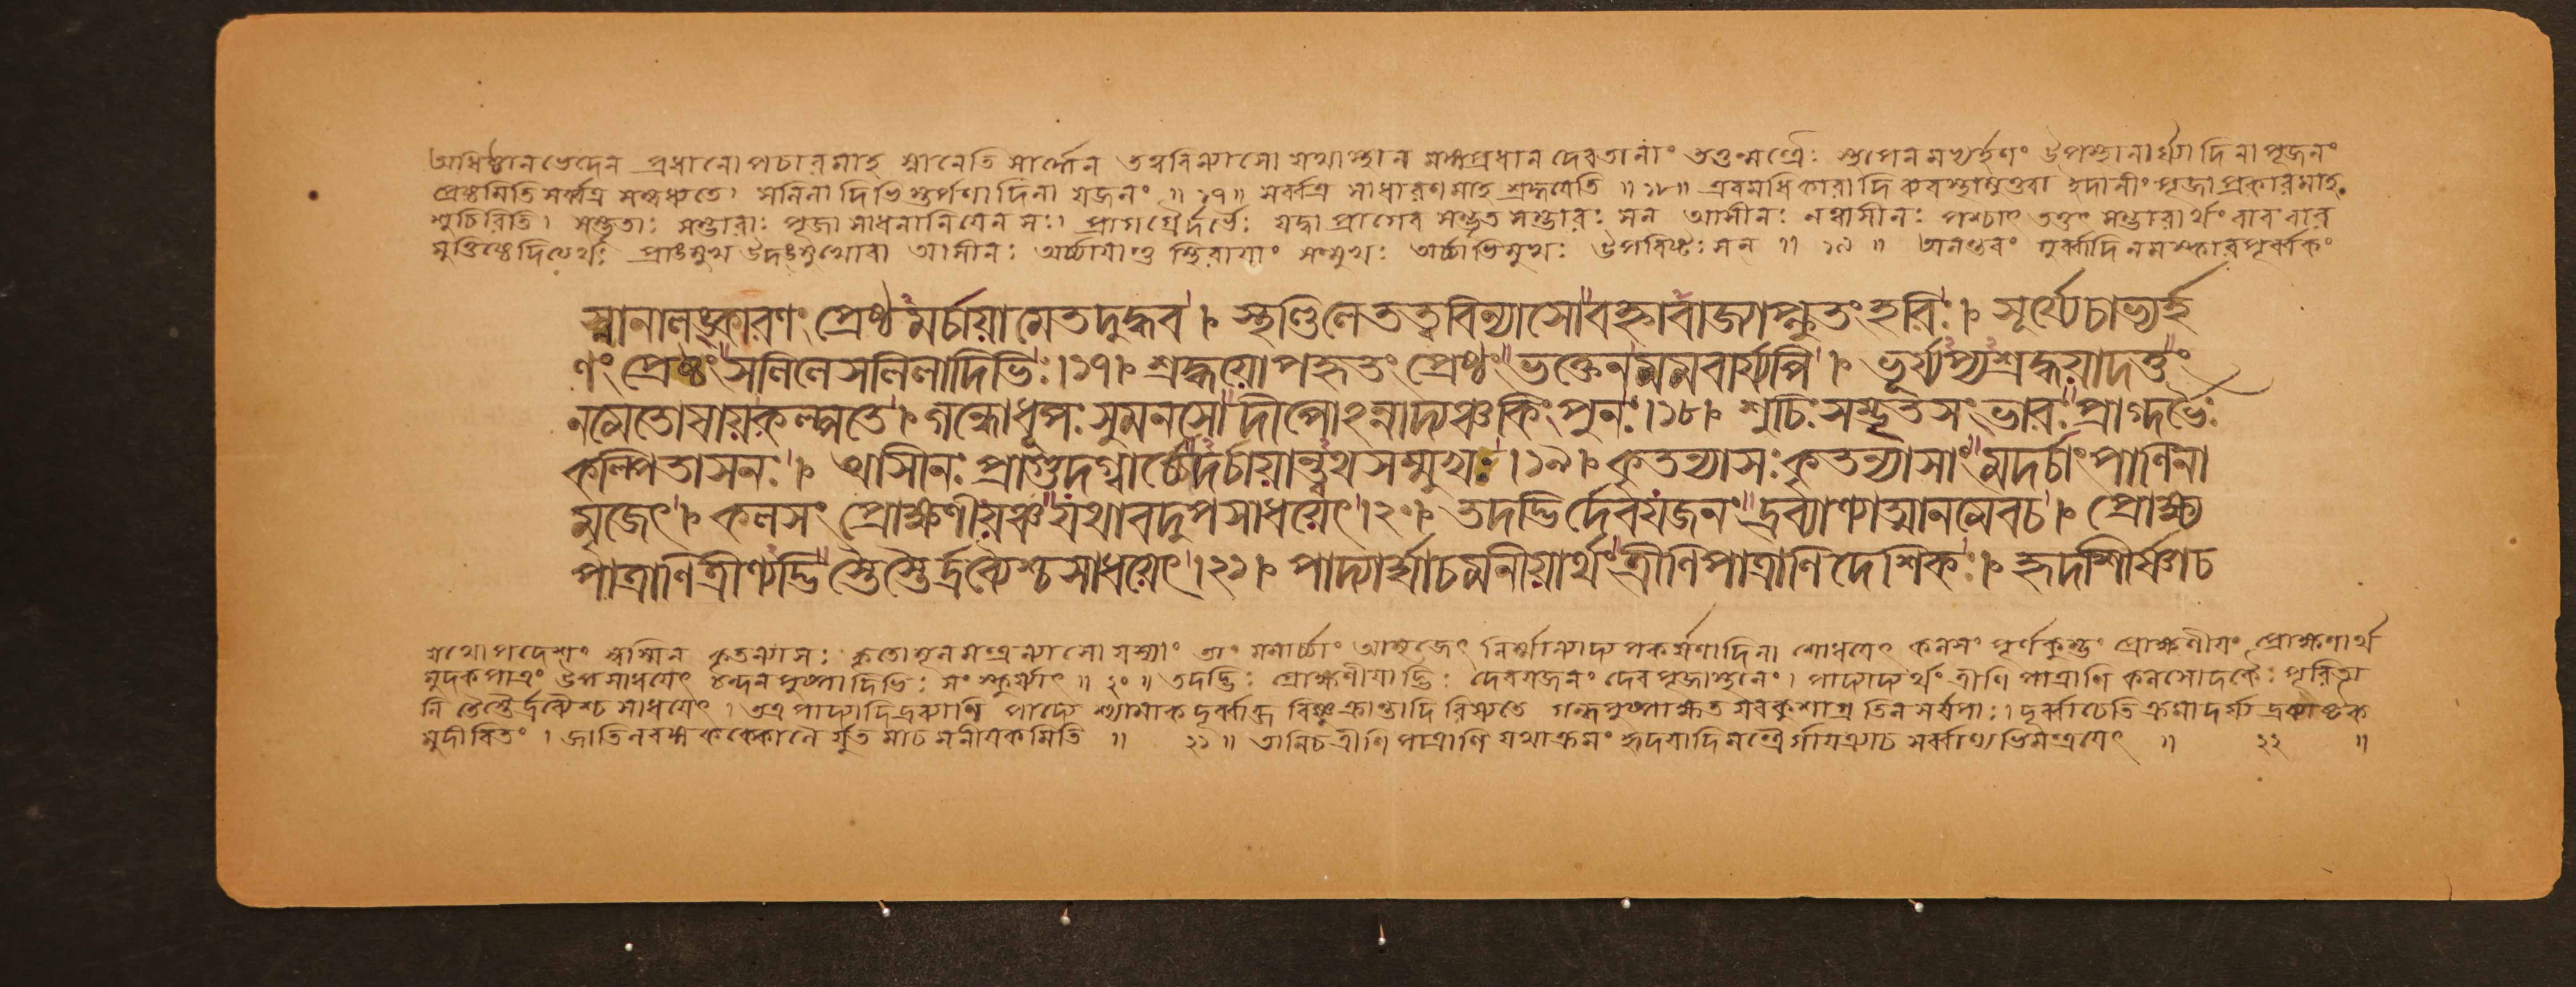 অধিষ্ঠানভেদেন প্রধানোপচারমাহ স্নানেতি সার্দ্ধেন তত্ত্ববিন্যাসো যথাস্থান মঙ্গপ্রধান দেবতানাং তত্তন্মন্ত্রৈঃ স্থাপনমভ্যর্হণং উপস্থানার্ঘ্যাদিনা পূজনং
প্রেষ্ঠমিতি সর্ব্বত্র সম্বধ্যতে। সলিলাদিভিস্তর্পণাদিনা যজনং ॥ ১৭॥ সর্ব্বত্র সাধারণমাহ শ্রদ্ধয়েতি ॥ ১৮॥ এবমধিকারাদি ব্যবস্থামুক্তবা ইদানীং পূজাপ্রকারমাহ
শুচিরিতি। সম্ভৃতাঃ সম্ভারাঃ পূজা সাধনানি যেন সঃ। প্রাগগ্রৈর্দর্ভৈঃ যদ্বা প্রাগেব সম্ভৃত সম্ভারঃ সন আসীনঃ নত্বাসীনঃ পশ্চাৎ তত্তৎ সম্ভারার্থং বারবার
মুত্তিষ্ঠেদিত্যর্থঃ প্রাঙ্মুখ উদঙ্মুখোবা আসীনঃ অর্চ্চায়ান্তু স্থিরায়াং সম্মুখঃ অর্চ্চাভিমুখঃ উপবিষ্টঃ সন ॥ ১৯ ॥ অনন্তরং গুর্ব্বাদিনমস্কারপূর্ব্বকং
স্নানালঙ্কারণং প্রেষ্ঠমর্চায়ামেতদুদ্ধব। স্থণ্ডিলেতত্ত্ববিন্যাসোবহ্নাবাজ্যপ্লুতংহবিঃ। সূর্য্যেচাভ্যর্হ
ণং প্রেষ্ঠং সলিলেসলিলাদিভিঃ।১৭। শ্রদ্ধয়োপহৃতং প্রেষ্ঠং ভক্তেনমমবার্য্যপি। ভূর্য্যপ্যশ্রদ্ধয়াদত্তং
নমেতোষায়কল্পতে। গন্ধোধূপঃ সুমনসো দীপোঽন্নাদ্যঞ্চকিংপুনঃ।১৮। শুচিঃ সম্ভৃতসংভারঃ প্রাগ্দর্ভৈঃ
কল্পিতাসনঃ। আসীনঃ প্রাগুদগ্বার্চেদর্চায়ান্ত্বথসম্মুখঃ।১৯। কৃতন্যাসঃ কৃতন্যাসাং মদর্চাং পাণিনা
মৃজেৎ। কলসং প্রোক্ষণীয়ঞ্চ যথাবদুপসাধয়েৎ।২০। তদদ্ভির্দেবযজনং দ্রব্যাণ্যাত্মানমেবচ। প্রোক্ষ্য
পাত্রাণিত্রীণ্যদ্ভি স্তৈস্তৈর্দ্রব্যৈশ্চসাধয়েৎ।২১। পাদ্যার্ঘ্যাচমনীয়ার্থং ত্রীণিপাত্রাণিদেশিকঃ। হৃদাশীর্ষ্ণাচ
যথোপদেশং স্বস্মিন কৃতন্যাসঃ কৃতোমূলমন্ত্রন্যাসো যস্যাং তাং মমার্চ্চাং আমৃজেৎ নির্ম্মাল্যাদ্যপকর্ষণাদিনা শোধয়েৎ কলসং পূর্ণকুম্ভং প্রোক্ষণীয়ং প্রোক্ষণার্থ
মুদকপাত্রং উপসাধয়েৎ চন্দনপুষ্পাদিভিঃ সংস্কুর্য্যাৎ ॥ ২০ ॥ তদদ্ভিঃ প্রোক্ষণীয়াদ্ভিঃ দেবযজনং দেবপূজাস্থানং। পাদ্যাদ্যর্থং ত্রীণি পাত্রাণি কলসোদকৈঃ পূরিত্বা
নি তৈস্তৈর্দ্রব্যৈশ্চ সাধয়েৎ। তত্র পাদ্যাদিদ্রব্যাণি পাদ্যে শ্যামাক দূর্ব্বাব্জ বিষ্ণুক্রান্তাদি রিষ্যতে গন্ধপুষ্পাক্ষত যবকুশাগ্র তিল সর্ষপাঃ। দূর্ব্বাচেতি ক্রমাদর্ঘ্য দ্রব্যাষ্টক
মুদীরিতং। জাতিলবঙ্গ কক্কোলৈ র্যুত মাচমনীয়কমিতি ॥ ২১ ॥ তানিচ ত্রীণি পাত্রাণি যথাক্রমং হৃদয়াদিমন্ত্রৈ র্গায়ত্র্যাচ সর্ব্বাণ্যভিমন্ত্রয়েৎ ॥ ২২ ॥